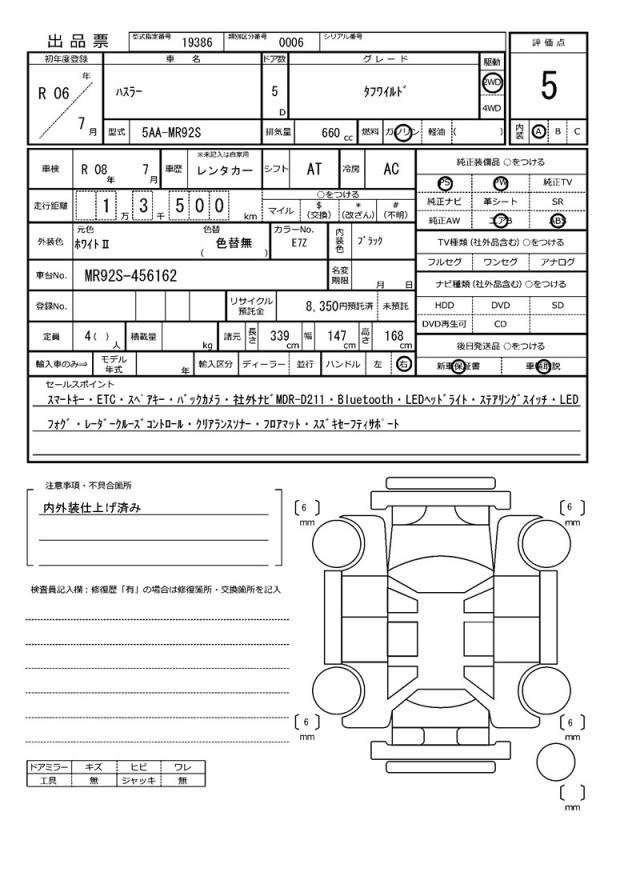 出品票
型式指定番号 19386 類別区分番号 0006 シリアル番号
評価点
5
内装 A B C
初年度登録 車名 ドア数 グレード 駆動
R 06 年 7 月 ﾊｽﾗｰ 5 D ﾀﾌﾜｲﾙﾄﾞ 2WD 4WD
型式 5AA-MR92S 排気量 660 cc 燃料 ガソリン 軽油 ( )
車検 R 08 年 7 月 車歴 ※未記入は自家用 レンタカー シフト AT 冷房 AC
走行距離 1 万 3 千 5 0 0 km ○をつける マイル $ (交換) * (改ざん) # (不明)
外装色 元色 ﾎﾜｲﾄⅡ 色替 ( 色替無 ) カラーNo. E7Z 内装色 ﾌﾞﾗｯｸ
車台No. MR92S-456162 名変期限 月 日
登録No. リサイクル預託金 8,350円預託済 未預託
定員 4( ) 人 積載量 kg 諸元 長さ 339 cm 幅 147 cm 高さ 168 cm
輸入車のみ⇒ モデル年式 年 輸入区分 ディーラー 並行 ハンドル 左 右
純正装備品 ○をつける
PS PW 純正TV
純正ナビ 革シート SR
純正AW エアB ABS
TV種類 (社外品含む) ○をつける
フルセグ ワンセグ アナログ
ナビ種類 (社外品含む) ○をつける
HDD DVD SD
DVD再生可 CD
後日発送品 ○をつける
新車保証書 車輌取説
セールスポイント
ｽﾏｰﾄｷｰ・ETC・ｽﾍﾟｱｷｰ・ﾊﾞｯｸｶﾒﾗ・社外ﾅﾋﾞMDR-D211・Bluetooth・LEDﾍｯﾄﾞﾗｲﾄ・ｽﾃｱﾘﾝｸﾞｽｲｯﾁ・LED
ﾌｫｸﾞ・ﾚｰﾀﾞｰｸﾙｰｽﾞｺﾝﾄﾛｰﾙ・ｸﾘｱﾗﾝｽｿﾅｰ・ﾌﾛｱﾏｯﾄ・ｽｽﾞｷｾｰﾌﾃｨｻﾎﾟｰﾄ
注意事項・不具合箇所
内外装仕上げ済み
検査員記入欄：修復歴「有」の場合は修復箇所・交換箇所を記入
ドアミラー キズ ヒビ ワレ
工具 無 ジャッキ 無
[ 6 ] mm
[ 6 ] mm
[ 6 ] mm
[ 6 ] mm
[ ] mm